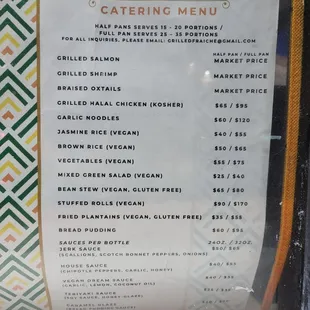 CATERING MENU
HALF PANS SERVES 15 - 20 PORTIONS /
FULL PAN SERVES 25 - 35 PORTIONS
FOR ALL INQUIRIES, PLEASE EMAIL: GRILLEDFRAICHE@GMAIL.COM
HALF PAN / FULL PAN
GRILLED SALMON MARKET PRICE
GRILLED SHRIMP MARKET PRICE
BRAISED OXTAILS MARKET PRICE
GRILLED HALAL CHICKEN (KOSHER) $65 / $95
GARLIC NOODLES $60 / $120
JASMINE RICE (VEGAN) $40 / $55
BROWN RICE (VEGAN) $50 / $65
VEGETABLES (VEGAN) $55 / $75
MIXED GREEN SALAD (VEGAN) $25 / $40
BEAN STEW (VEGAN, GLUTEN FREE) $65 / $80
STUFFED ROLLS (VEGAN) $90 / $170
FRIED PLANTAINS (VEGAN, GLUTEN FREE) $35 / $55
BREAD PUDDING $60 / $85
SAUCES PER BOTTLE 24OZ. / 32OZ.
JERK SAUCE
(SCALLIONS, SCOTCH BONNET PEPPERS, ONIONS)
HOUSE SAUCE
(CHIPOTLE PEPPERS, GARLIC, HONEY)
VEGAN DREAM SAUCE
(GARLIC, LEMON, COCONUT OIL)
TERIYAKI SAUCE